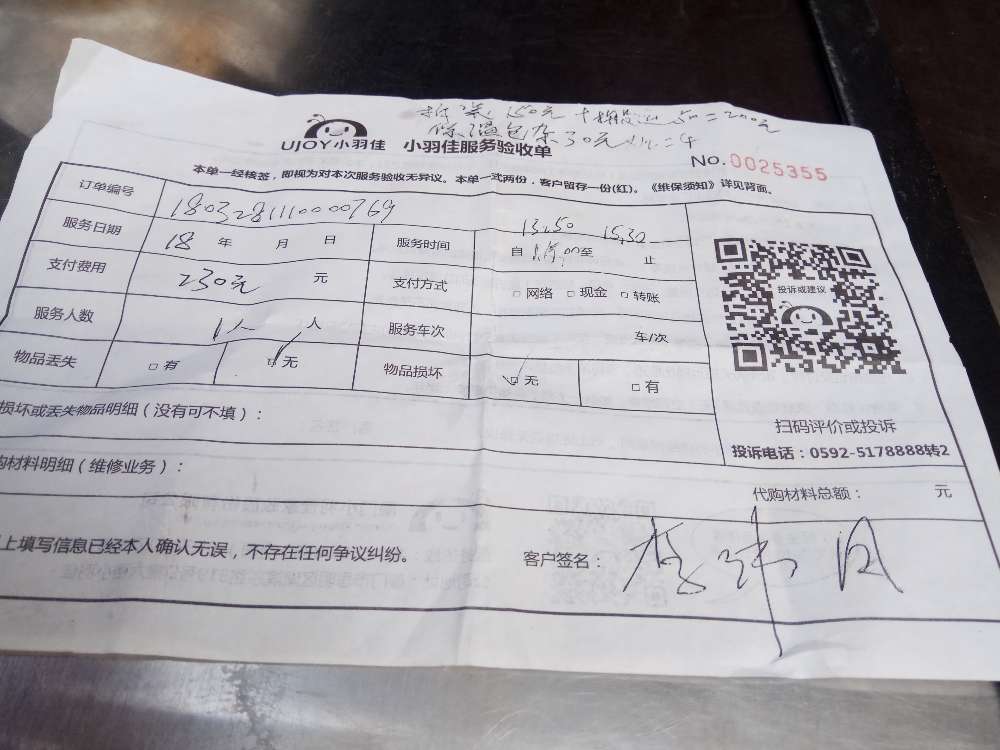 拆装 150元 50=200元
保温包扎30元
UJOY小羽佳 小羽佳服务验收单
NO.0025355
本单一经核签，即视为对本次服务验收无异议。本单一式两份，客户留存一份(红)。《维保须知》详见背面。
订单编号 1803281110000769
服务日期 18 年 月 日 服务时间 自 至 止
13:50 15:30
支付费用 230元 元 支付方式 □网络 □现金 □转账
投诉或建议
服务人数 1人 人 服务车次 车/次
物品丢失 □有 ☑无 物品损坏 ☑无 □有
损坏或丢失物品明细（没有可不填）：
扫码评价或投诉
投诉电话：0592-5178888转2
购材料明细（维修业务）：
代购材料总额： 元
上填写信息已经本人确认无误，不存在任何争议纠纷。
客户签名： 李